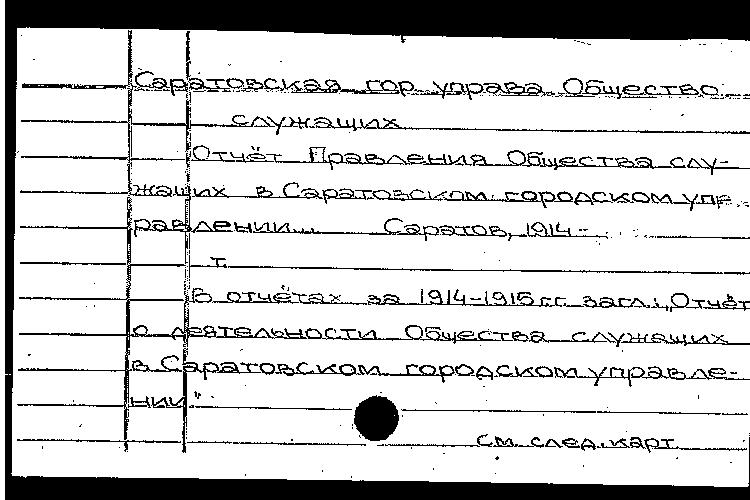 Саратовская гор управа Общество
служащих
Отчёт Правления Общества слу-
жащих в Саратовском городском уп
равлении... Саратов, 1914 -
т.
В отчётах за 1914-1915 г.г. загл.: „Отчёт
о деятельности Общества служащих
в Саратовском городском управле-
нии."
см. след. карт.